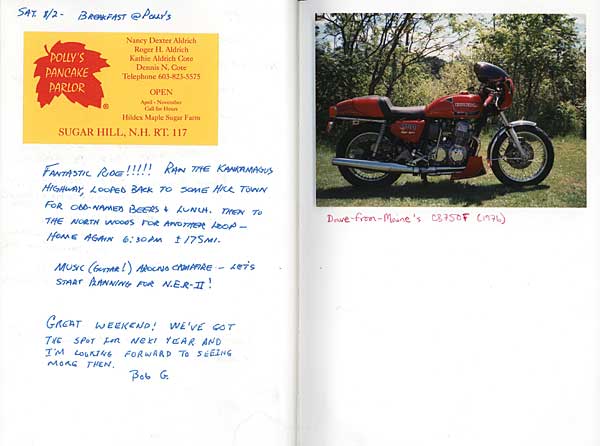 SAT. 8/2- BREAKFAST @ POLLY'S
POLLY'S
PANCAKE
PARLOR
®
Nancy Dexter Aldrich
Roger H. Aldrich
Kathie Aldrich Cote
Dennis N. Cote
Telephone 603-823-5575
OPEN
April - November
Call for Hours
Hildex Maple Sugar Farm
SUGAR HILL, N.H. RT. 117
FANTASTIC RIDE!!!!! RAN THE KANKAMAGUS
HIGHWAY, LOOPED BACK TO SOME HICK TOWN
FOR ODD-NAMED BEERS & LUNCH. THEN TO
THE NORTH WOODS FOR ANOTHER LOOP -
HOME AGAIN 6:30PM ± 175MI.
MUSIC (GUITAR!) AROUND CAMPFIRE - LET'S
START PLANNING FOR N.E.R-II!
GREAT WEEKEND! WE'VE GOT
THE SPOT FOR NEXT YEAR AND
I'M LOOKING FORWARD TO SEEING
MORE THEN.
BOB G.
Dave-from-Maine's CB750F (1976)